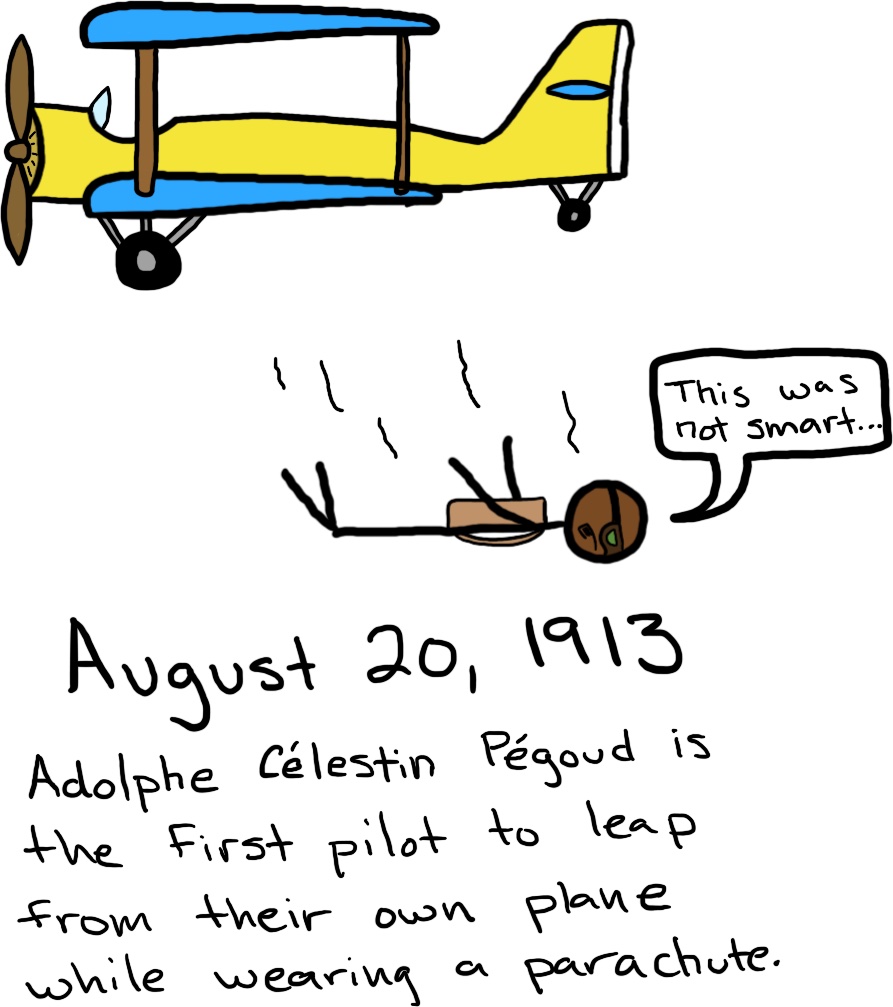 This was
not smart...
August 20, 1913
Adolphe Célestin Pégoud is
the first pilot to leap
from their own plane
while wearing a parachute.